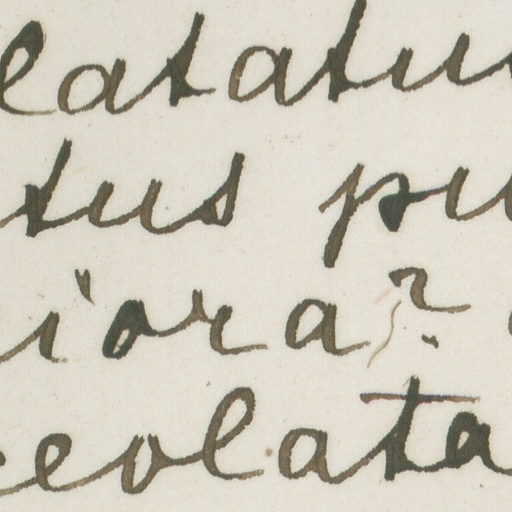 latatu
tus pu
iora?
eolata